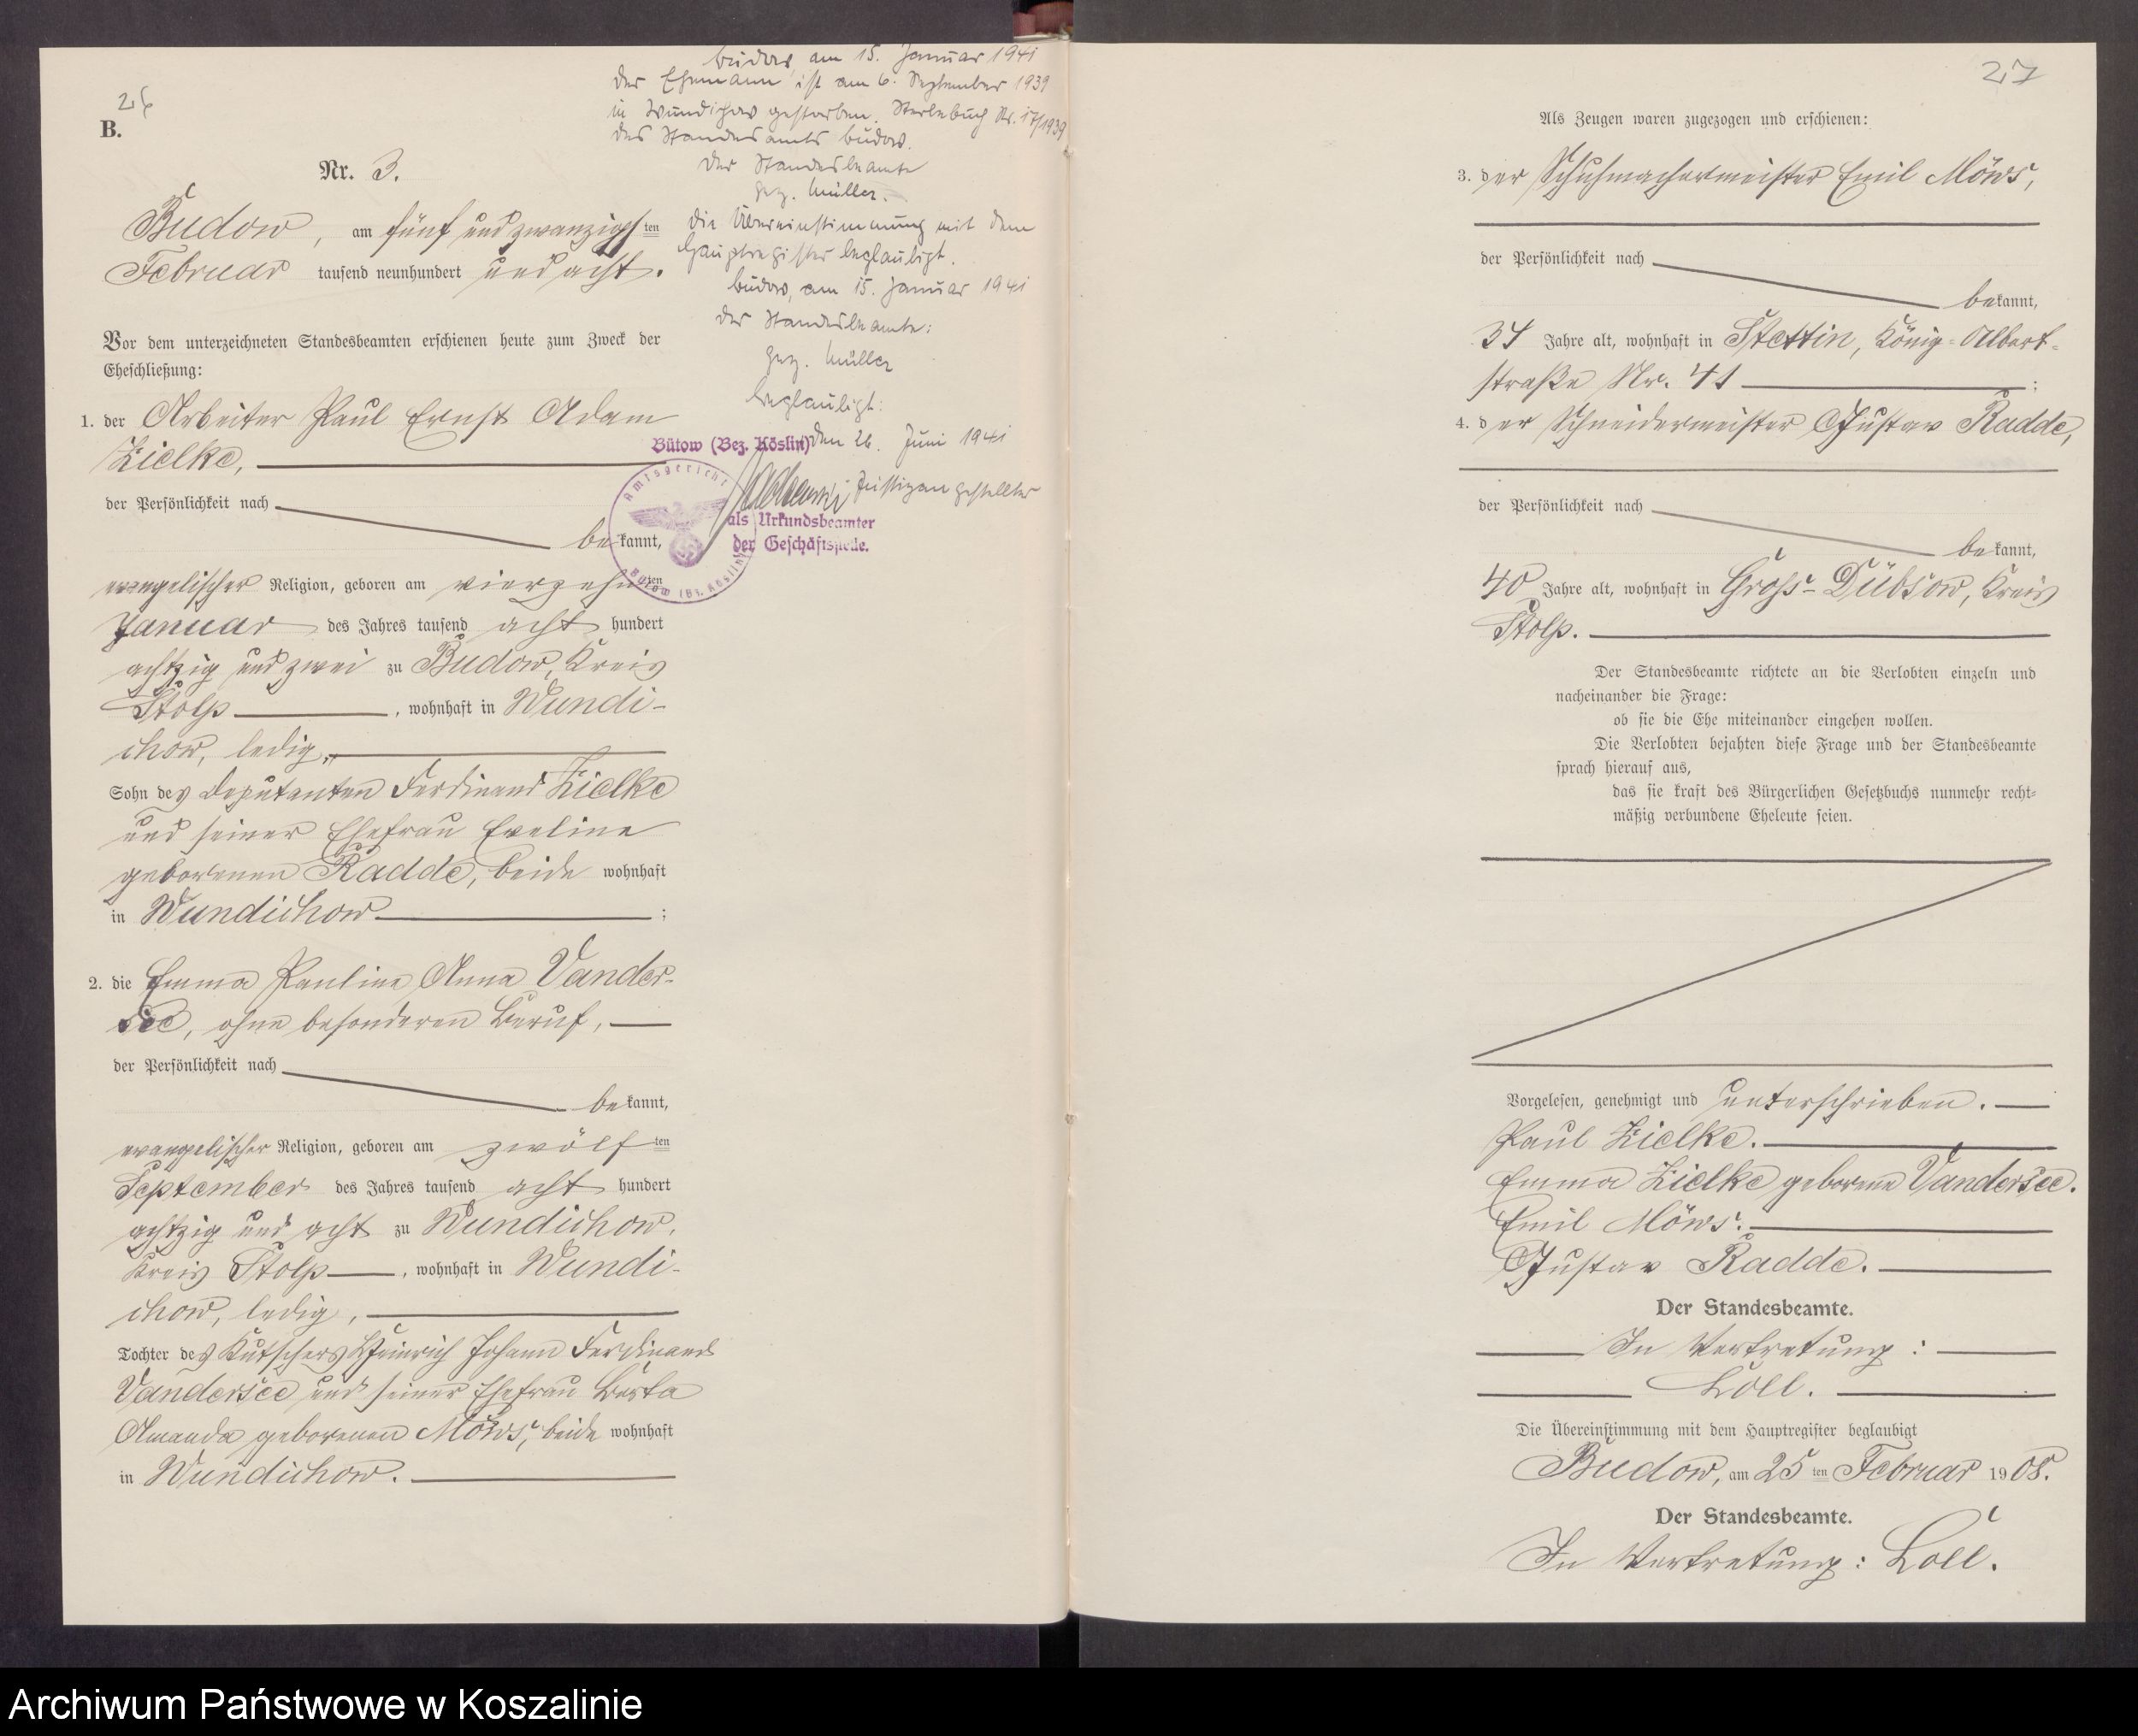 26
B.
Nr. 3.
Budow, am fünf und zwanzigsten
Februar tausend neunhundert und acht.
Vor dem unterzeichneten Standesbeamten erschienen heute zum Zweck der
Eheschließung:
1. der Arbeiter Paul Ernst Adam
Zielke,
der Persönlichkeit nach
bekannt,
evangelischer Religion, geboren am vierzehnten
Januar des Jahres tausend acht hundert
achtzig und zwei zu Budow, Kreis
Stolp, wohnhaft in Wundi-
chow, ledig,
Sohn des Deputanten Ferdinand Zielke
und seiner Ehefrau Eveline
geborenen Radde, beide wohnhaft
in Wundichow;
2. die Emma Pauline Anna Vander-
see, ohne besonderen Beruf,
der Persönlichkeit nach
bekannt,
evangelischer Religion, geboren am zwölften
September des Jahres tausend acht hundert
achtzig und acht zu Wundichow,
Kreis Stolp, wohnhaft in Wundi-
chow, ledig,
Tochter des Kutschers Heinrich Johann Ferdinand
Vandersee und seiner Ehefrau Berta
Amanda geborenen Möws, beide wohnhaft
in Wundichow.
Budow, am 15. Januar 1941
Der Ehemann ist am 6. September 1939
in Wundichow gestorben. Sterbebuch Nr. 17/1939
des Standesamts Budow.
Der Standesbeamte
gez. Müller.
Die Übereinstimmung mit dem
Hauptregister beglaubigt.
Budow, am 15. Januar 1941
Der Standesbeamte:
gez. Müller
Beglaubigt:
Bütow (Bez. Köslin) den 26. Juni 1941
Justizangestellter
als Urkundsbeamter
der Geschäftsstelle.
Amtsgericht
Bütow (Bz. Köslin)
27
Als Zeugen waren zugezogen und erschienen:
3. der Schuhmachermeister Emil Möws,
der Persönlichkeit nach
bekannt,
34 Jahre alt, wohnhaft in Stettin, König-Albert-
straße Nr. 41;
4. der Schneidermeister Gustav Radde,
der Persönlichkeit nach
bekannt,
40 Jahre alt, wohnhaft in Gross-Dübsow, Kreis
Stolp.
Der Standesbeamte richtete an die Verlobten einzeln und
nacheinander die Frage:
ob sie die Ehe miteinander eingehen wollen.
Die Verlobten bejahten diese Frage und der Standesbeamte
sprach hierauf aus,
das sie kraft des Bürgerlichen Gesetzbuchs nunmehr recht-
mäßig verbundene Eheleute seien.
Vorgelesen, genehmigt und unterschrieben.
Paul Zielke.
Emma Zielke geborene Vandersee.
Emil Möws.
Gustav Radde.
Der Standesbeamte.
In Vertretung:
Loll.
Die Übereinstimmung mit dem Hauptregister beglaubigt
Budow, am 25 ten Februar 1908.
Der Standesbeamte.
In Vertretung: Loll.
Archiwum Państwowe w Koszalinie